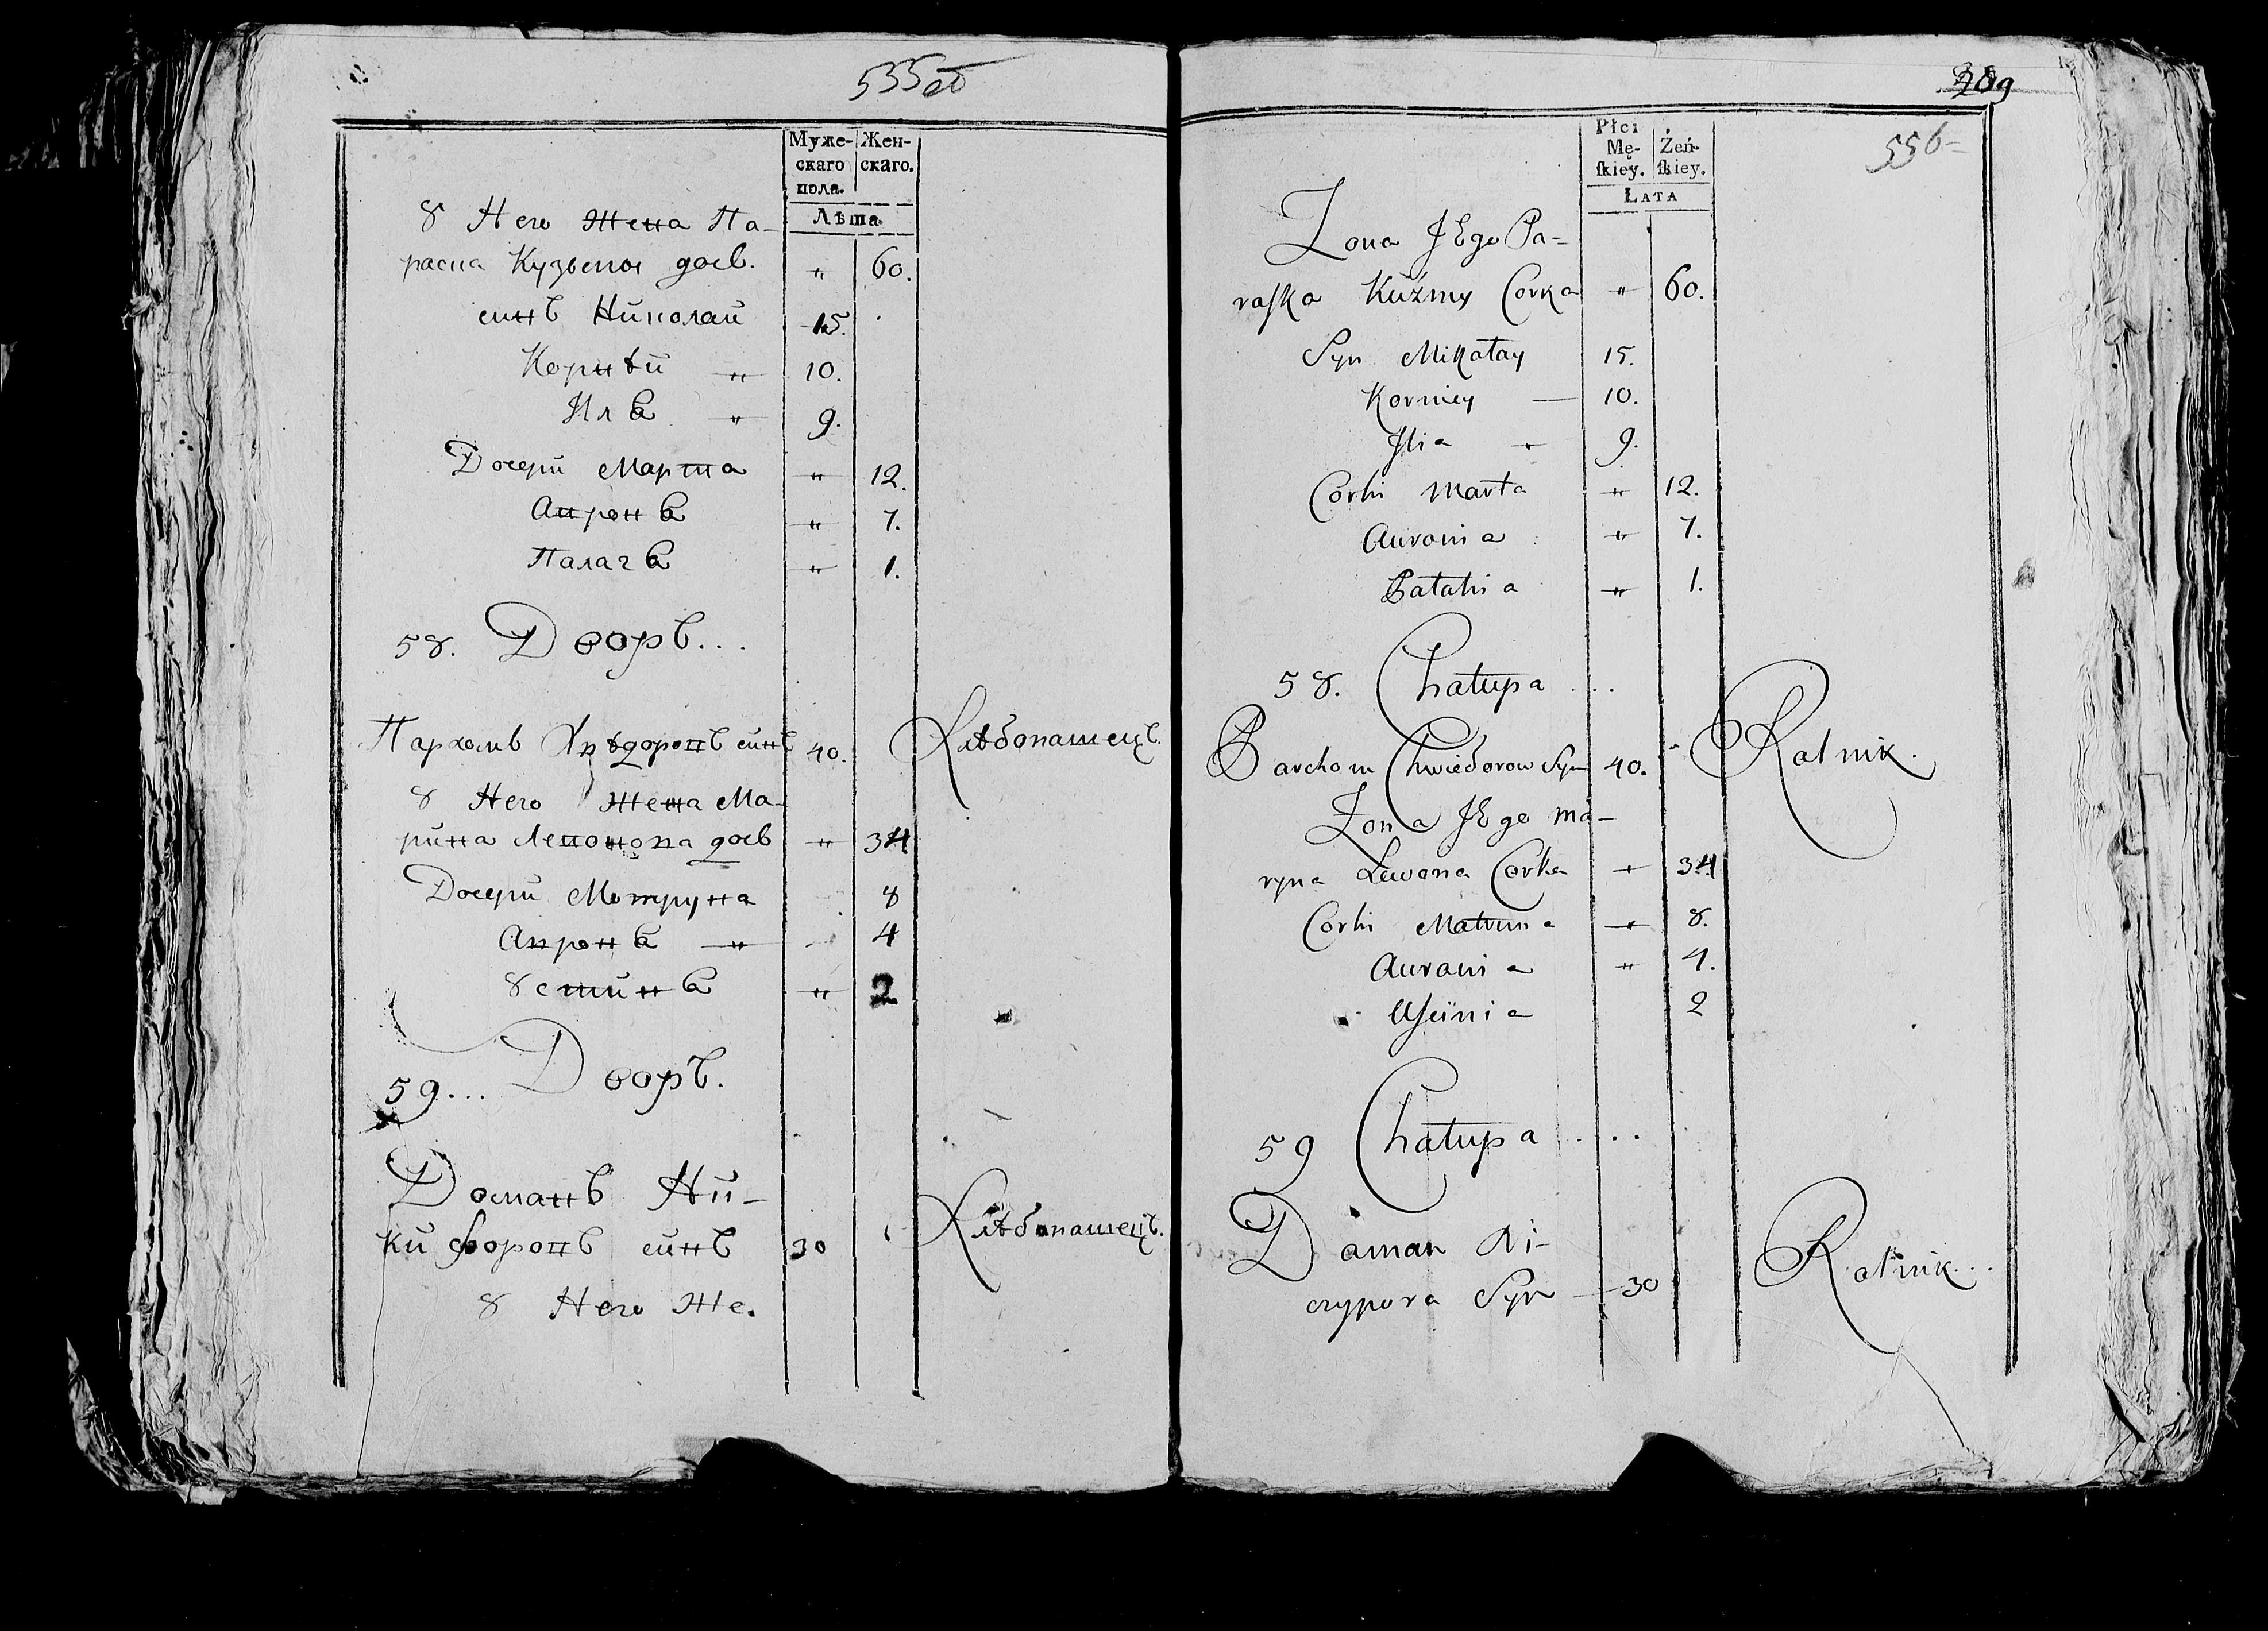 535об
Муже- Жен-
скаго скаго.
пола.
Лѣта
У Него Жена Па-
раска Кузьмы доч. " 60.
синъ Николай 15.
Корнѣй " 10.
Илія " 9.
Дочери Марта " 12.
Апронія " 7.
Палагія " 1.
58. Дворъ...
Пархомъ Хвѣдоровъ синъ 40. Хлѣбопашецъ.
У Него Жена Ма-
рина Левонова дочь " 34
Дочери Мотруна 8
Апронія " 4
Устинія " 2
59... Дворъ.
Доманъ Ни-
кифоровъ синъ 30 Хлѣбопашецъ.
У Него Же.
209
556
Płci
Mę- Żeń-
ſkiey. ſkiey.
LATA
Zona JEgo Pa=
raſka Kuźmy Corka " 60.
Syn Mikołay 15.
Korniey — 10.
Jlia " 9.
Corki Marta " 12.
Auronia " 7.
Pałahia " 1.
58. Chałupa ....
Parchom Chwiedorow Syn 40. Ratnik.
Zona JEgo Ma-
ryna Lewona Corka " 34
Corki Matruna " 8.
Aurania " 4.
Uſcinia 2
59 Chałupa ....
Daman Ni-
czypora Syn 30 Ratnik...